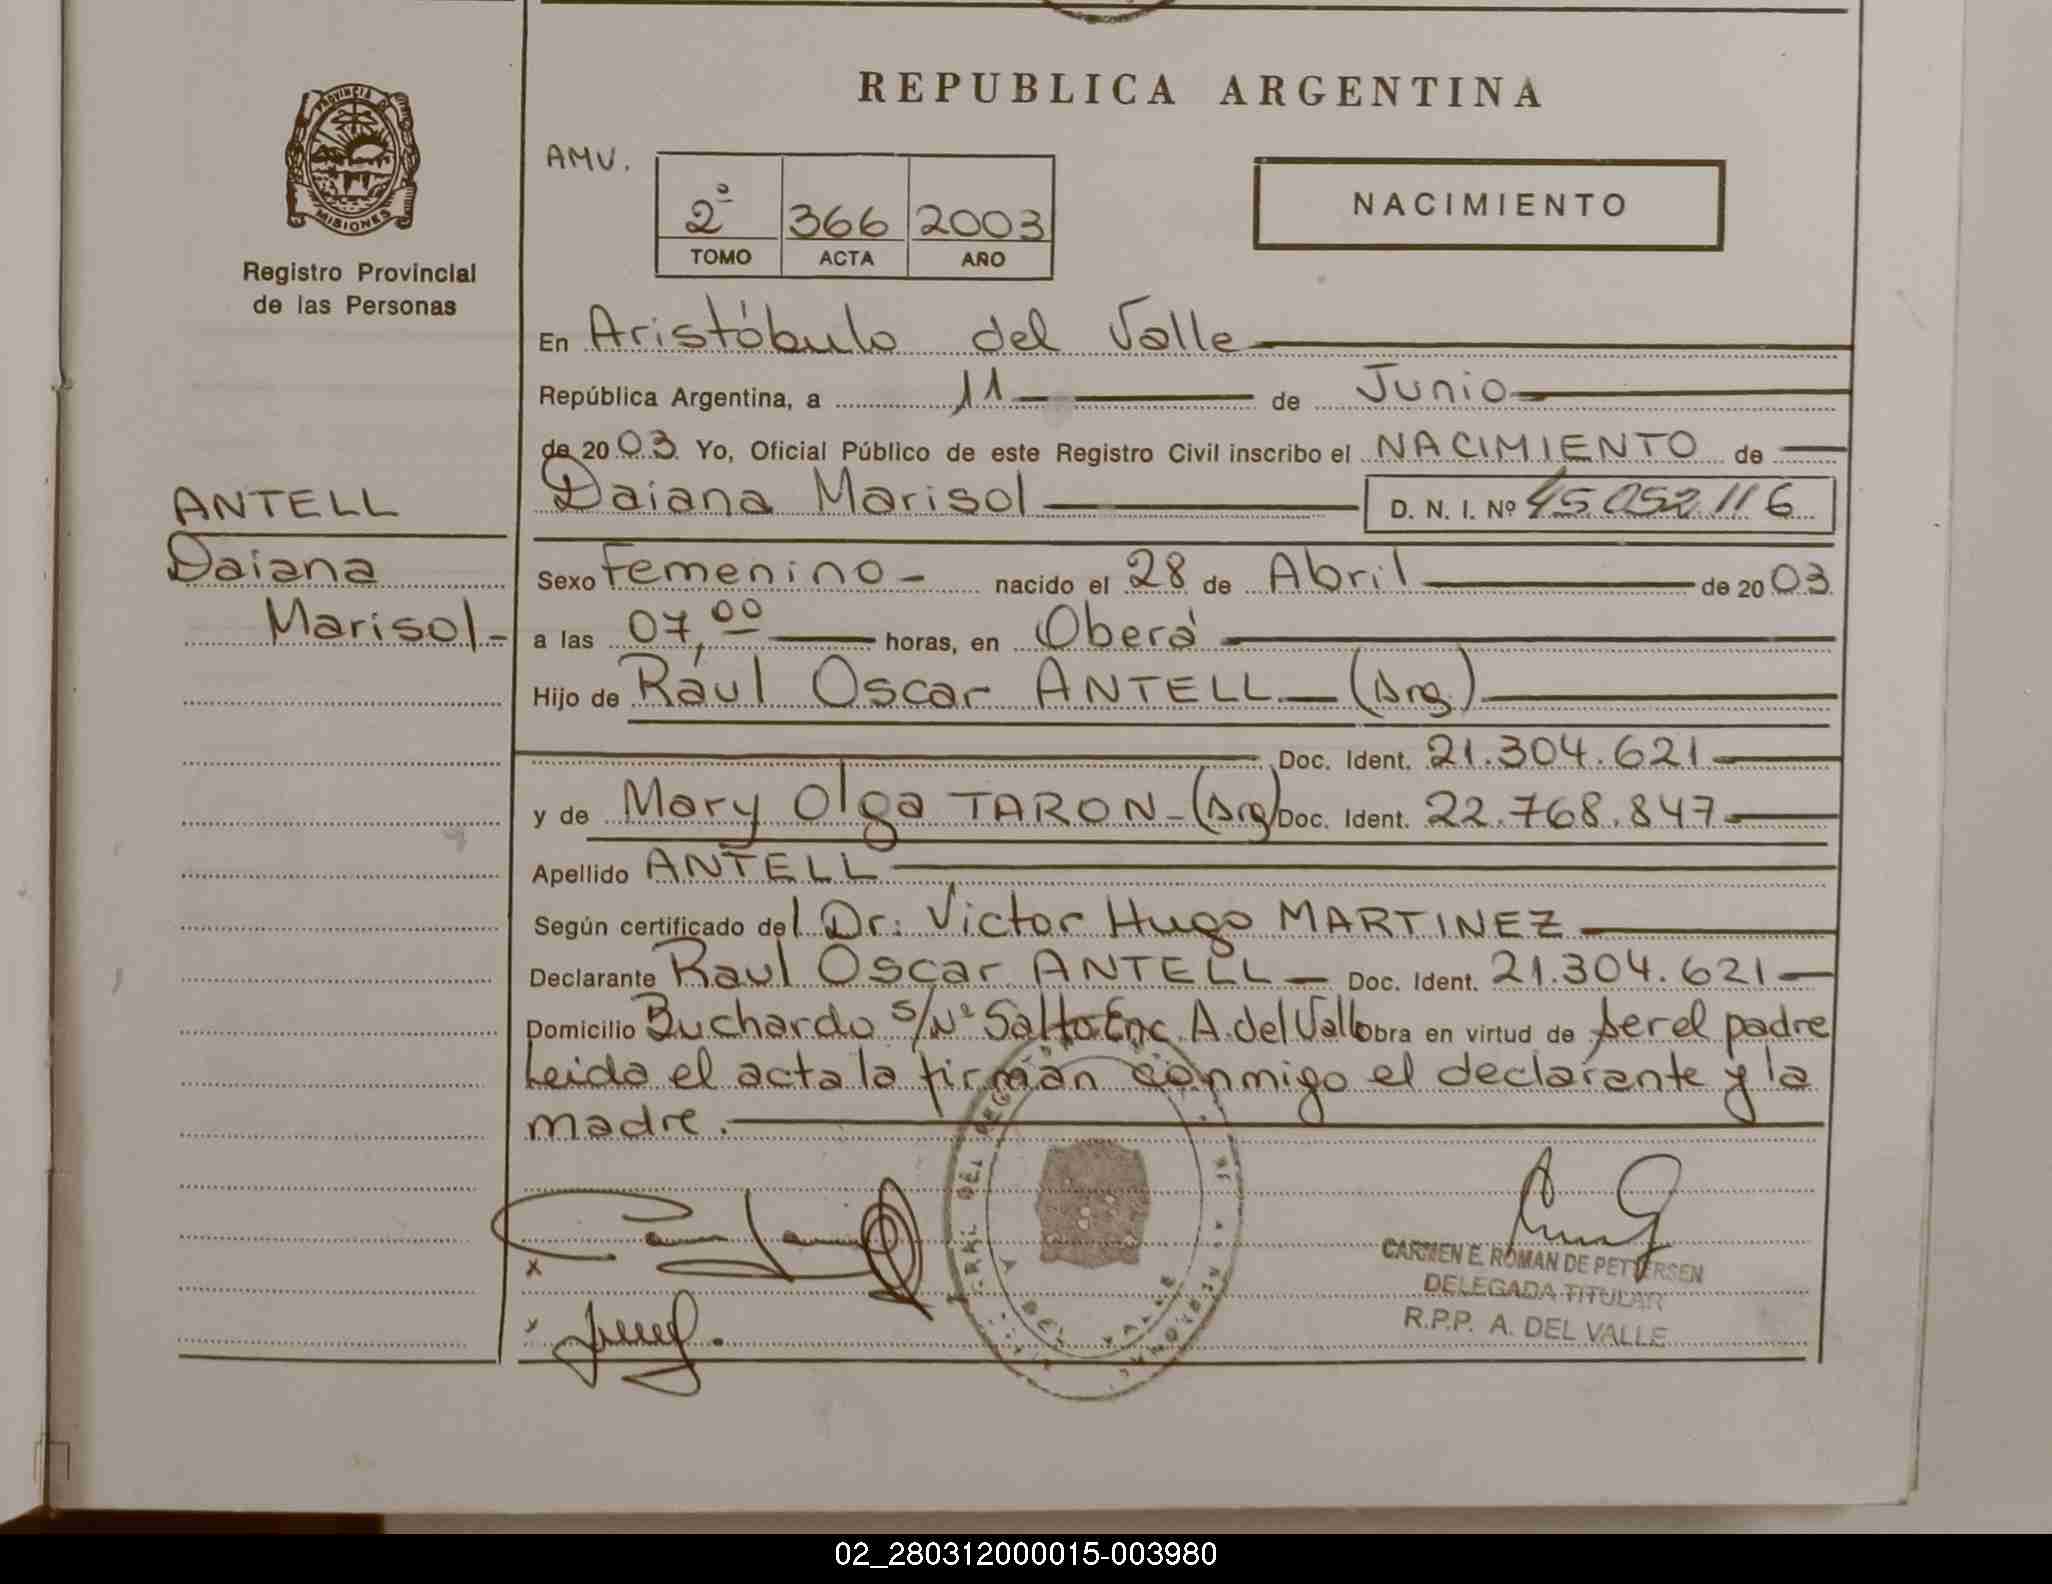 REPUBLICA ARGENTINA
PROVINCIA DE
MISIONES
Registro Provincial
de las Personas
AMV.
2º 366 2003
TOMO ACTA AÑO
NACIMIENTO
En Aristóbulo del Valle
República Argentina, a 11 de Junio
de 2003. Yo, Oficial Público de este Registro Civil inscribo el NACIMIENTO de
ANTELL
Daiana
Marisol
Daiana Marisol D. N. I. Nº 45.052.116
Sexo Femenino nacido el 28 de Abril de 2003.
a las 07,00 horas, en Oberá
Hijo de Rául Oscar ANTELL (Arg.)
Doc. Ident. 21.304.621
y de Mary Olga TARON (Arg) Doc. Ident. 22.768.847
Apellido ANTELL
Según certificado del Dr: Victor Hugo MARTINEZ
Declarante Raul Oscar ANTELL Doc. Ident. 21.304.621
Domicilio Buchardo s/Nº Salto Enc. A. del Valle obra en virtud de ser el padre
Leida el acta la firman conmigo el declarante y la
madre.
CARMEN E. ROMAN DE PETTERSEN
DELEGADA TITULAR
R.P.P. A. DEL VALLE
02_280312000015-003980